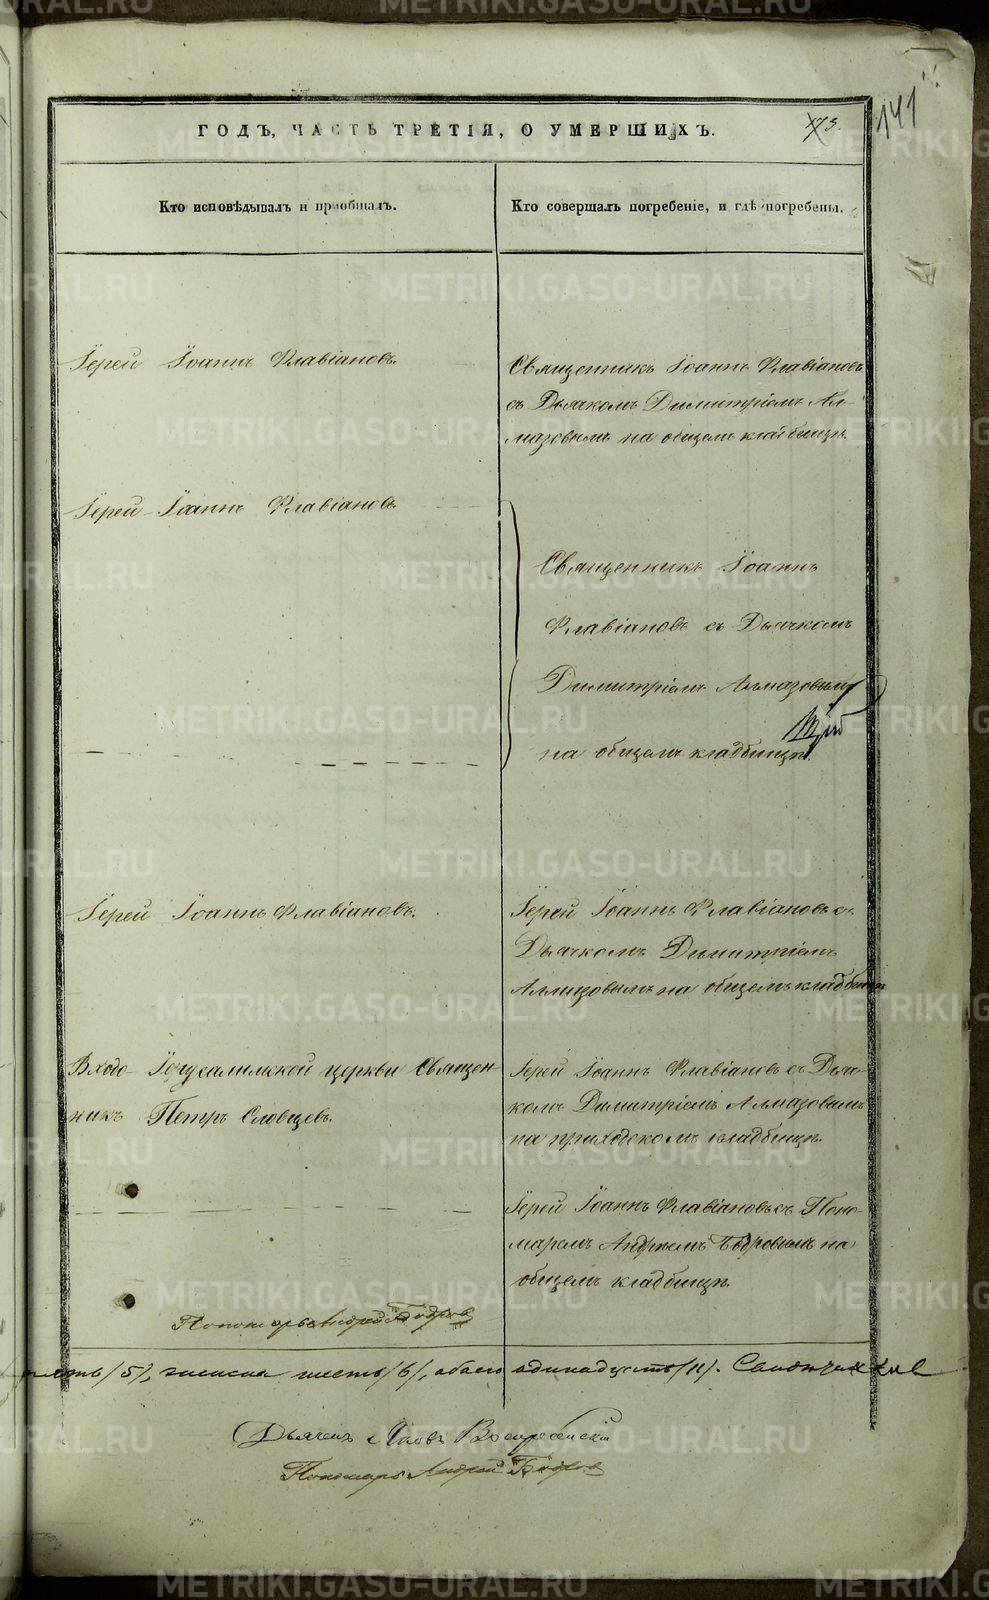 ГОДЪ, ЧАСТЬ ТРЕТІЯ, О УМЕРШИХЪ.
173.
141
Кто исповѣдывалъ и пріобщалъ.
Кто совершалъ погребеніе, и гдѣ погребены.
Іерей Іоаннъ Флавіановъ.
Священникъ Іоаннъ Флавіановъ
съ Дьячкомъ Димитріемъ Ал-
мазовымъ на общемъ кладбищѣ.
Іерей Іоаннъ Флавіановъ
Священникъ Іоаннъ
Флавіановъ съ Дьячкомъ
Димитріемъ Алмазовымъ
на общемъ кладбищѣ.
Іерей Іоаннъ Флавіановъ.
Іерей Іоаннъ Флавіановъ съ
Дьячкомъ Димитріемъ
Алмазовымъ на общемъ кладбищѣ
Входо-Іерусалимской церкви Священ-
никъ Петръ Словцевъ.
Іерей Іоаннъ Флавіановъ съ Дьяч-
комъ Димитріемъ Алмазовымъ
на приходскомъ кладбищѣ.
Іерей Іоаннъ Флавіановъ съ Поно-
маремъ Андреемъ Бодровымъ на
общемъ кладбищѣ.
Пономарь Андрей Бодровъ
пять /5/, женска шесть /6/, обоего одинадцать /11/. Священникъ
Дьячекъ Яковъ Воскресенскій
Пономарь Андрей Бодровъ
METRIKI.GASO-URAL.RU